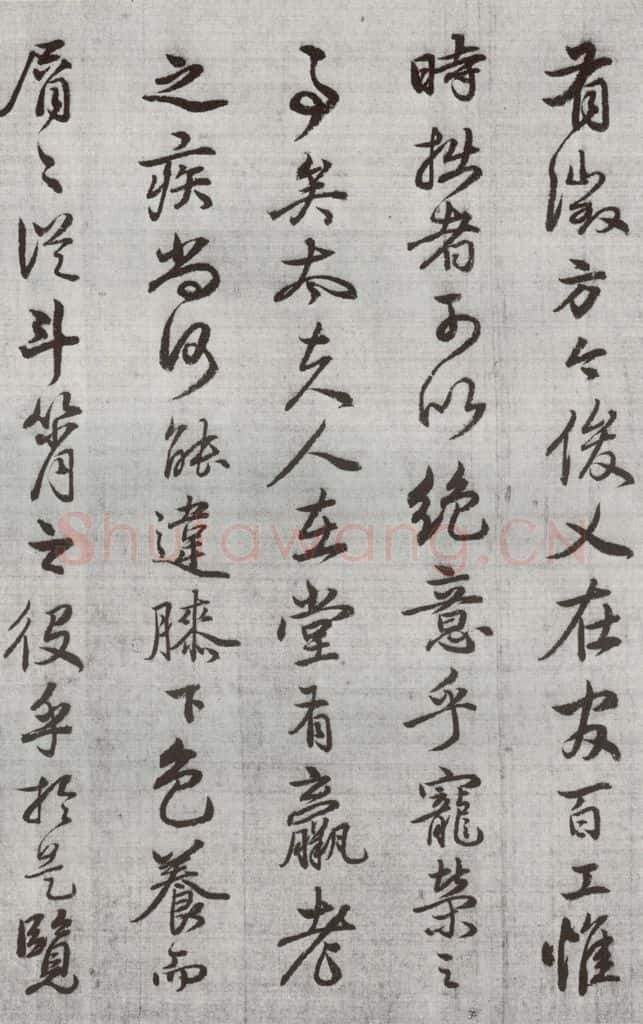 有徵方今俊乂在官百工惟
時拙者可以絕意乎寵榮之
事矣太夫人在堂有羸老
之疾尚何能違膝下色養而
屑〻從斗筲之役乎於是覽
Shufawang.CN